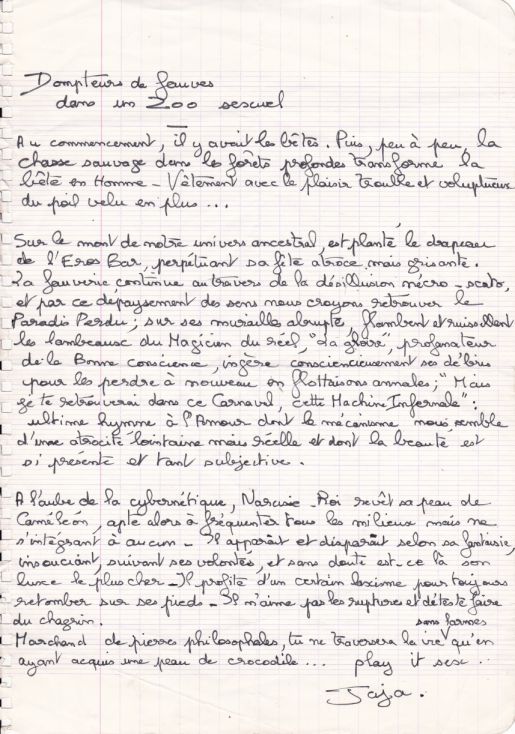 Dompteurs de fauves
dans un Zoo sexuel
Au commencement, il y avait les bêtes. Puis, peu à peu, la
chasse sauvage dans les forêts profondes transforme la
bête en Homme - Vêtement avec le plaisir trouble et voluptueux
du poil velu en plus ...
Sur le mont de notre univers ancestral, est planté le drapeau
de l'Eros Bar, perpétuant sa fête atroce, mais grisante.
La fauverie continue au travers de la désillusion nécro - scato,
et par ce depaysement des sens nous croyons retrouver le
Paradis Perdu ; sur ses murailles abruptes, flambent et ruissellent
les lambeaux du Magicien du réel, "La gloire", profanateur
de la Bonne Conscience, ingère consciencieusement ses débris
pour les perdre à nouveau en flottaisons annales ; "Mais
je te retrouverai dans ce Carnaval, cette Machine Infernale" :
ultime hymne à l'Amour dont le mécanisme nous semble
d'une atrocité lointaine mais réelle et dont la beauté est
si présente et tant subjective.
A l'aube de la cybernétique, Narcisse - Roi revêt sa peau de
Caméléon, apte alors à fréquenter tous les milieux mais ne
s'intégrant à aucun - Il apparaît et disparaît selon sa fantaisie,
insouciant, suivant ses volontés, et sans doute est-ce là son
luxe le plus cher - Il profite d'un certain laxisme pour toujours
retomber sur ses pieds - Il n'aime pas les ruptures et déteste faire
du chagrin.
Marchand de pierres philosophales, tu ne traversera la vie sans larmes qu'en
ayant acquis une peau de crocodile ... play it sex ..